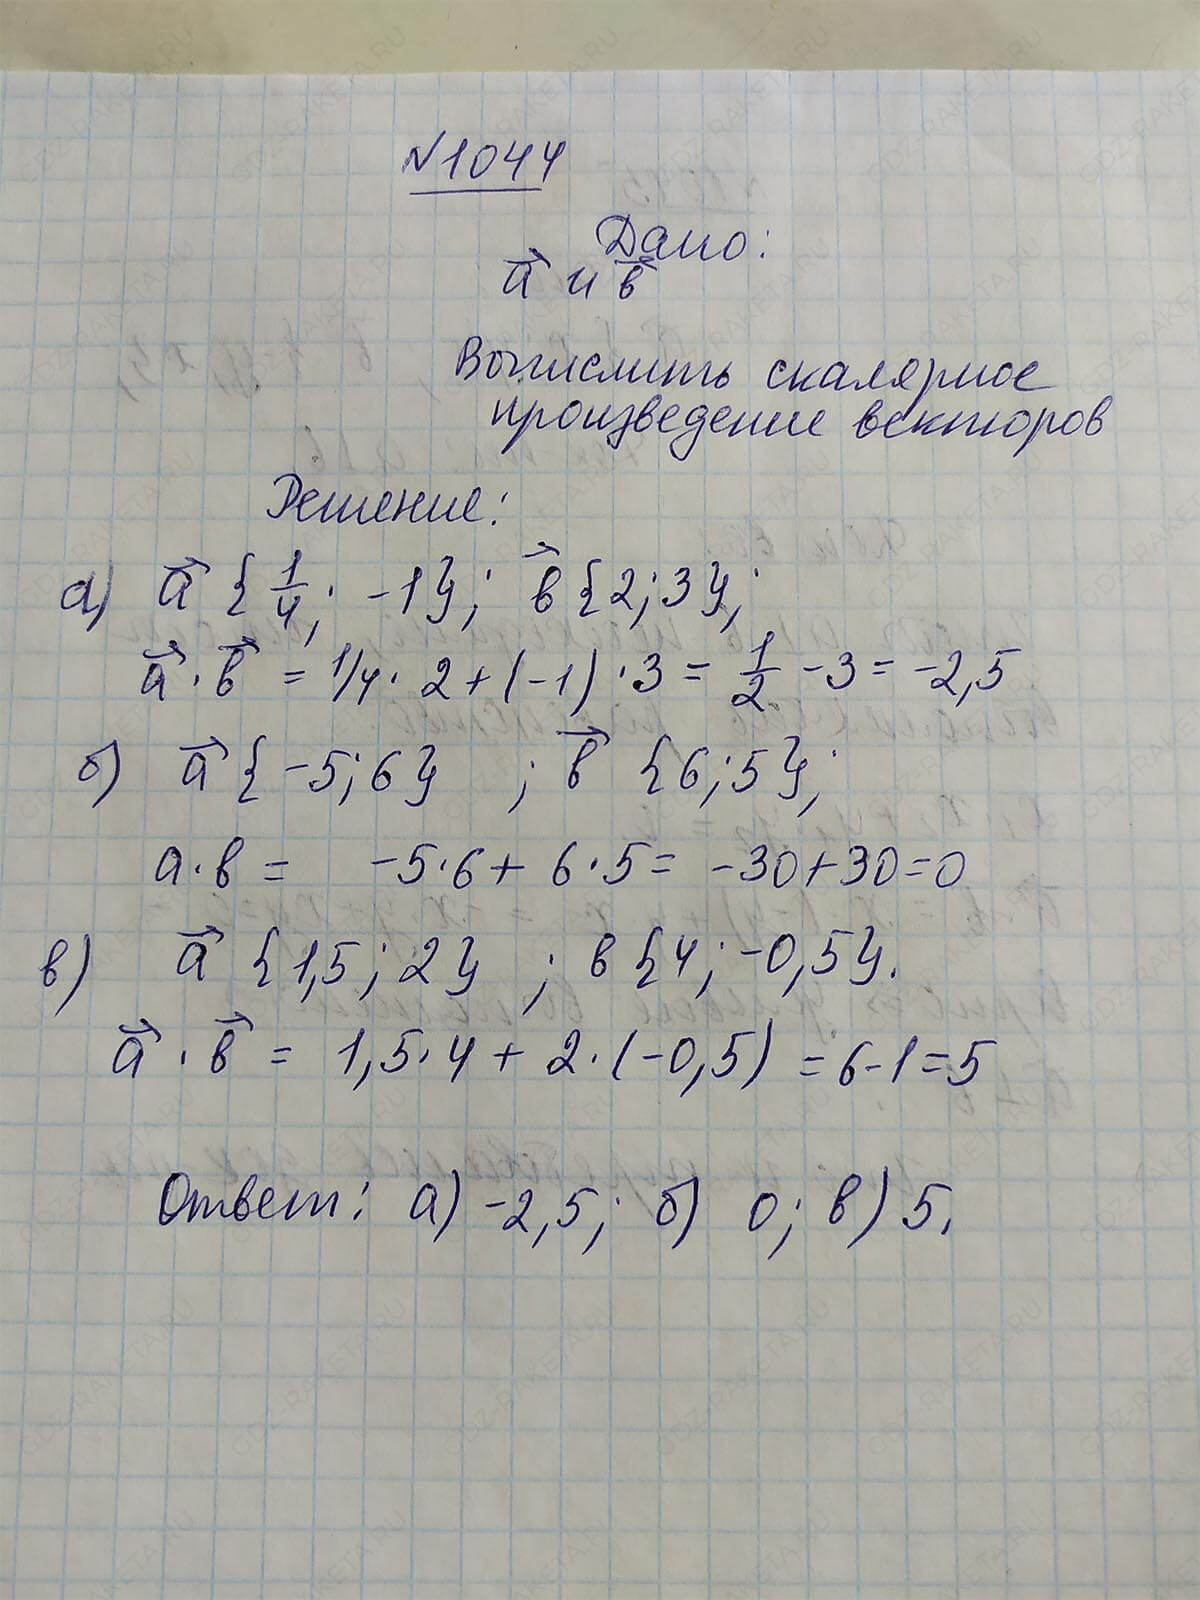 №1044
Дано:
a⃗ и в⃗
Вычислить скалярное
произведение векторов
Решение:
а) a⃗ {1/4; -1}; в⃗ {2; 3};
a⃗ · в⃗ = 1/4 · 2 + (-1) · 3 = 1/2 - 3 = -2,5
б) a⃗ {-5; 6} ; в⃗ {6; 5};
a · в = -5 · 6 + 6 · 5 = -30 + 30 = 0
в) a⃗ {1,5; 2} ; в {4; -0,5}.
a⃗ · в⃗ = 1,5 · 4 + 2 · (-0,5) = 6 - 1 = 5
Ответ: а) -2,5; б) 0; в) 5.